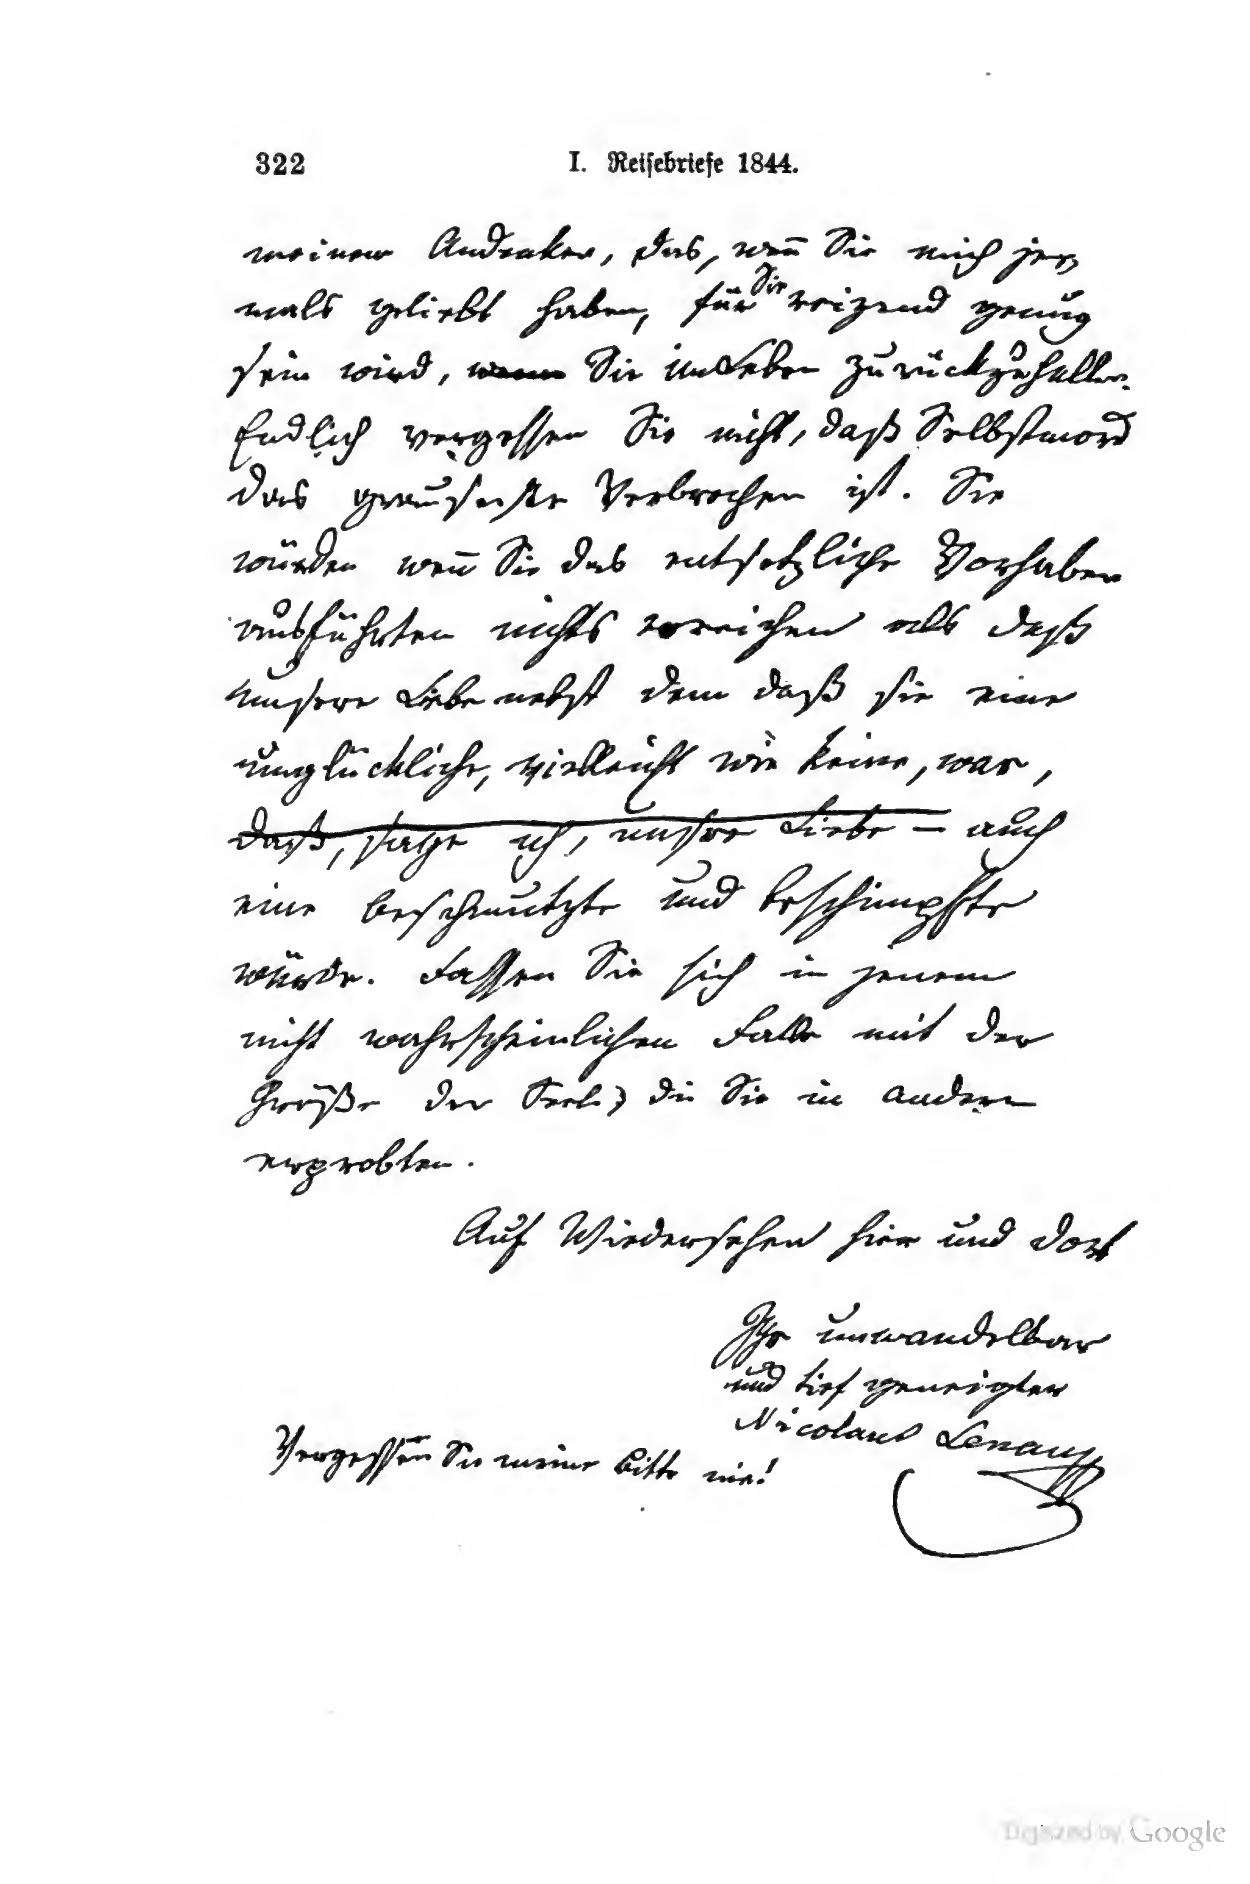 322 I. Reisebriefe 1844.
meinem Andenken, das, wen̄ Sie mich je-
mals geliebt haben, für Sie reizend genug
sein wird, wenn Sie im Leben zurückzuhalten.
Endlich vergessen Sie nicht, daß Selbstmord
das grausenste Verbrechen ist. Sie
würden wen̄ Sie das entsetzliche Vorhaben
ausführten nichts erreichen als daß
unsere Liebe nebst dem daß sie eine
unglückliche, vielleicht wie keine, war,
daß, sage ich, unsre Liebe – auch
eine beschmutzte und beschimpfte
würde. Fassen Sie sich in jenem
nicht wahrscheinlichen Falle mit der
Größe der Seele, die Sie in andern
erprobten.
Auf Wiedersehen hier und dort
Ihr unwandelbar
und tief geneigter
Nicolaus Lenau
Vergessen Sie meine Bitte nie!
Digitized by Google